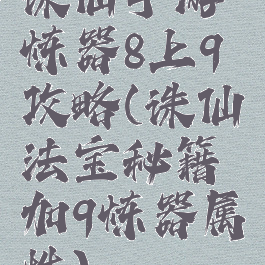 诛仙手游
炼器8上9
攻略(诛仙
法宝秘籍
加9炼器属
性)